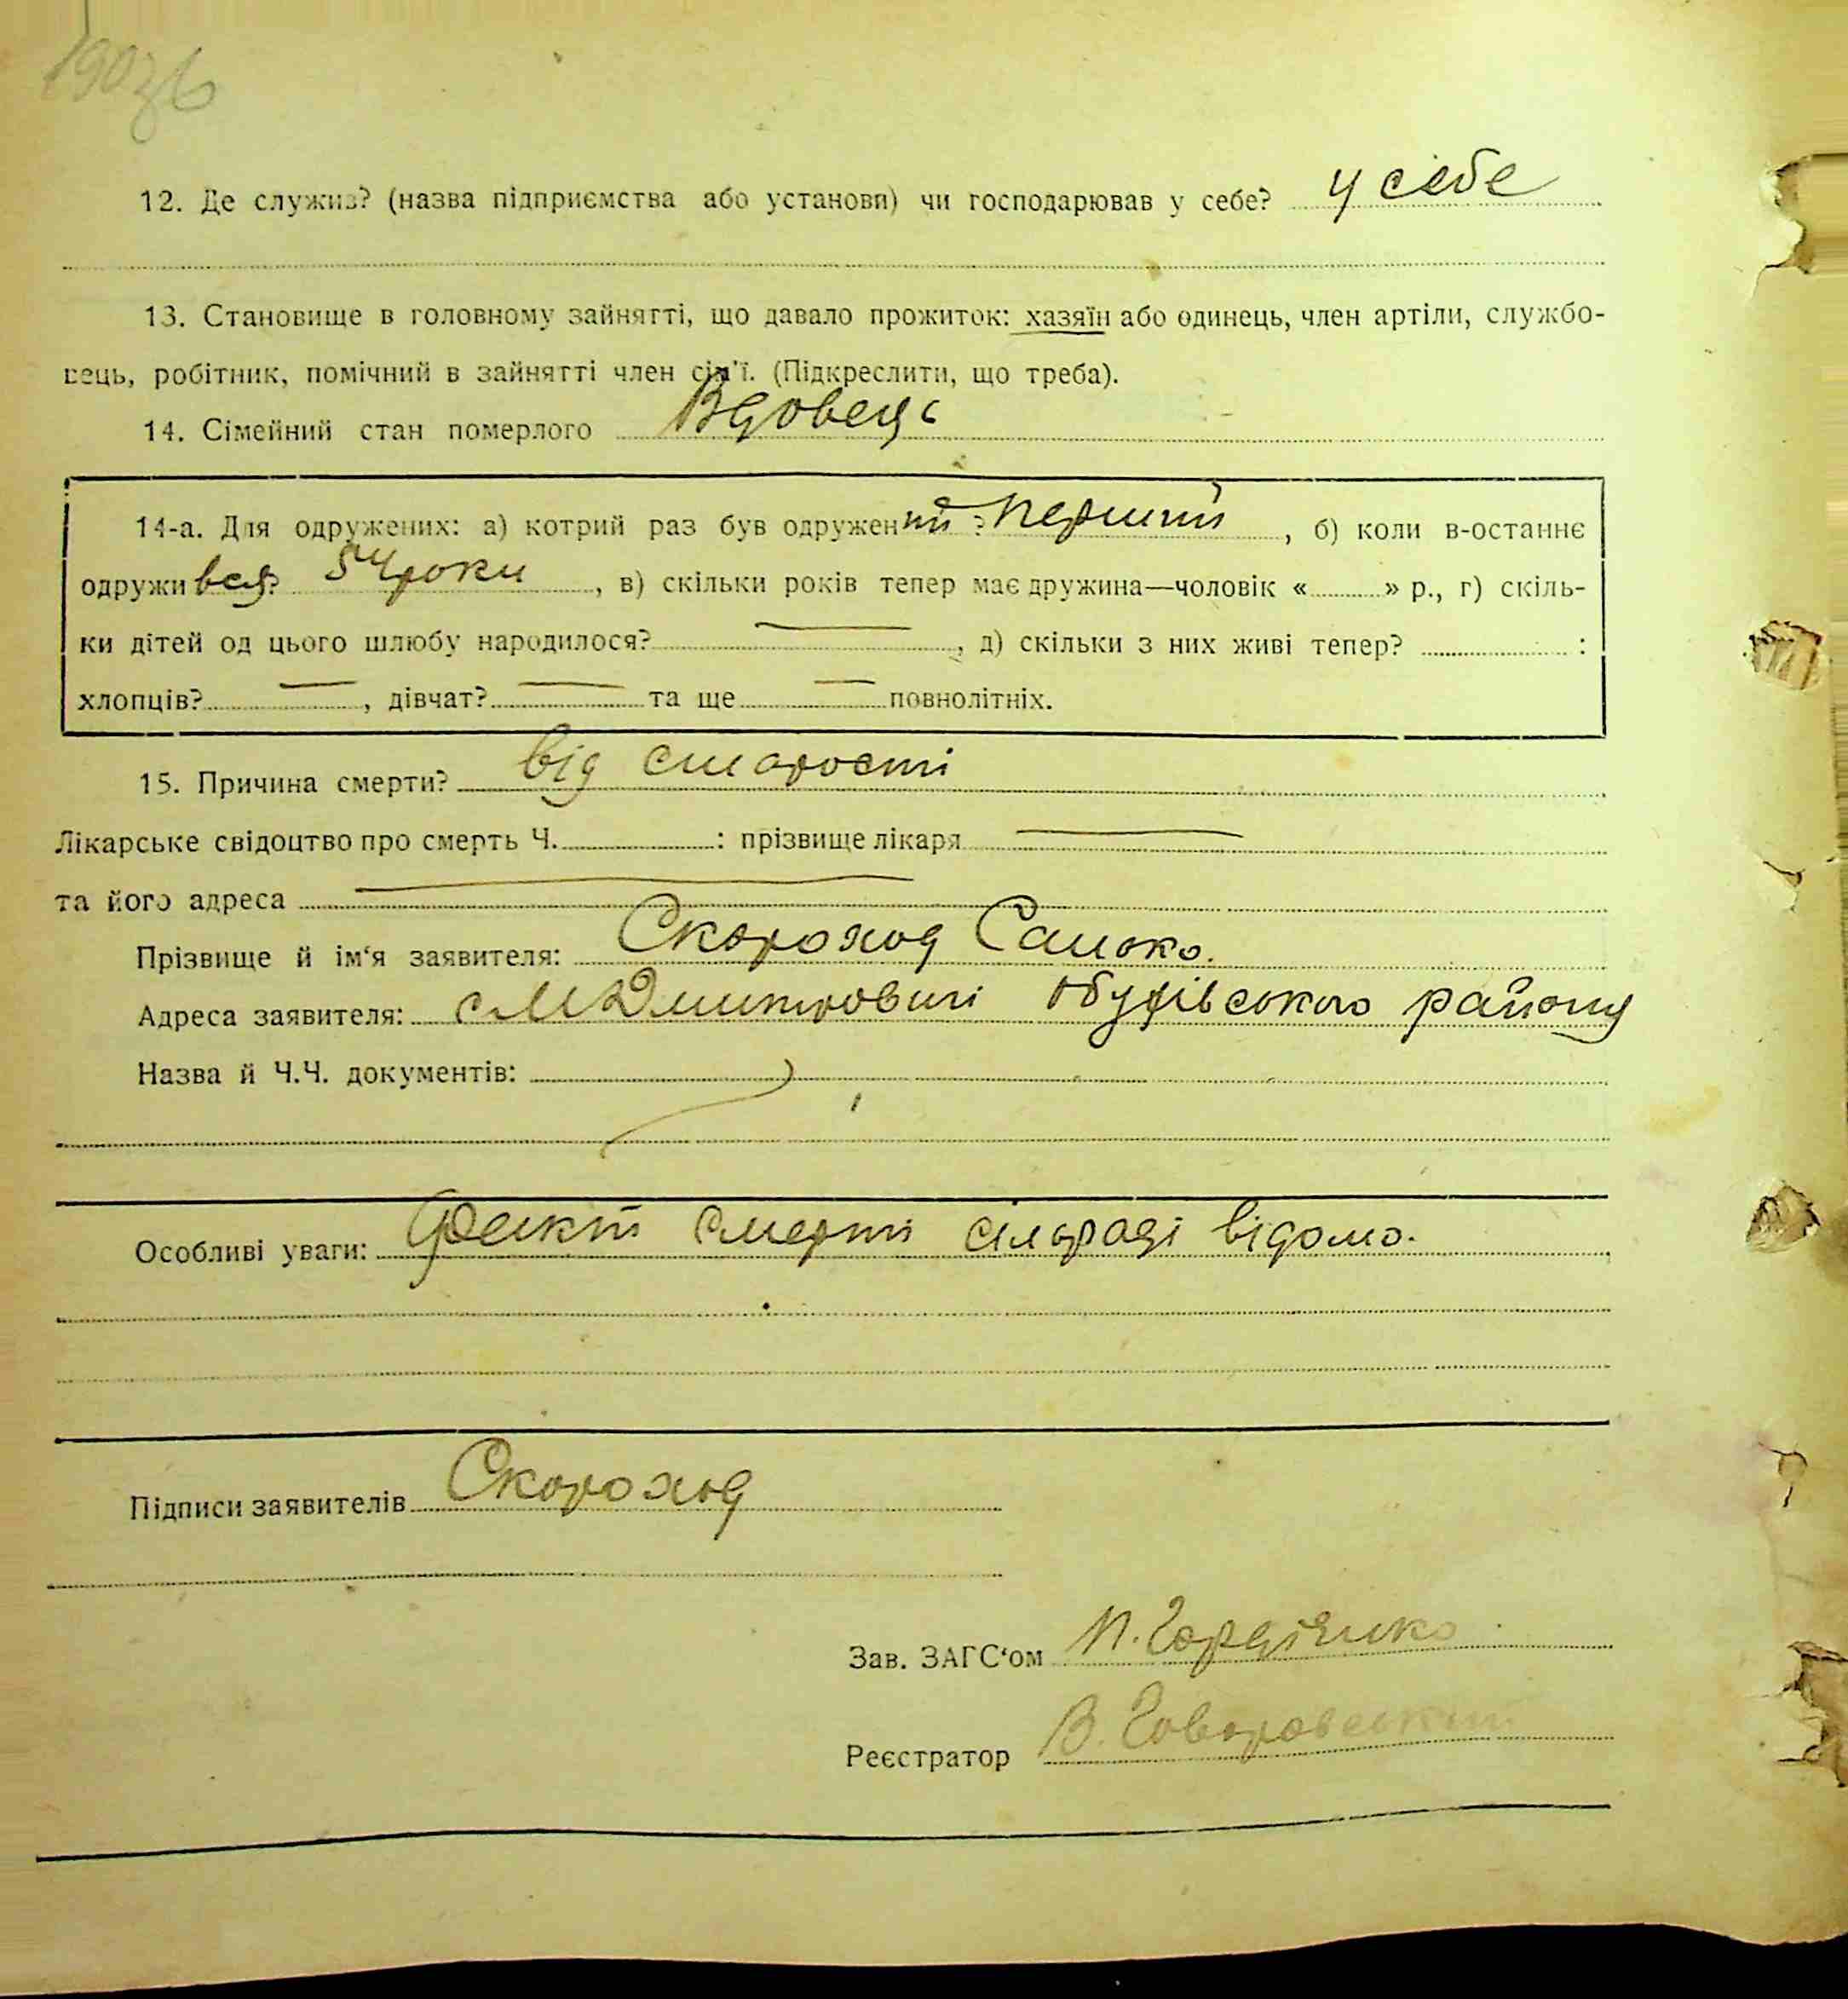 190зв
12. Де служив? (назва підприємства або установи) чи господарював у себе? у себе
13. Становище в головному зайнятті, що давало прожиток: хазяїн або одинець, член артіли, службо-
вець, робітник, помічний в зайнятті член сім'ї. (Підкреслити, що треба).
14. Сімейний стан померлого Вдовець
14-а. Для одружених: а) котрий раз був одружений? Перший, б) коли в-останнє
одружився? 54 роки, в) скільки років тепер має дружина—чоловік «...» р., г) скіль-
ки дітей од цього шлюбу народилося? —, д) скільки з них живі тепер? :
хлопців? —, дівчат? — та ще — повнолітніх.
15. Причина смерти? від старости
Лікарське свідоцтво про смерть Ч. : прізвище лікаря —
та його адреса —
Прізвище й ім'я заявителя: Скороход Санько.
Адреса заявителя: с М Дмитровичі Обухівського району
Назва й Ч.Ч. документів:
Особливі уваги: Факт смерти сільраді відомо.
Підписи заявителів Скороход
Зав. ЗАГС'ом П. Гордієнко
Реєстратор В. Говоровський